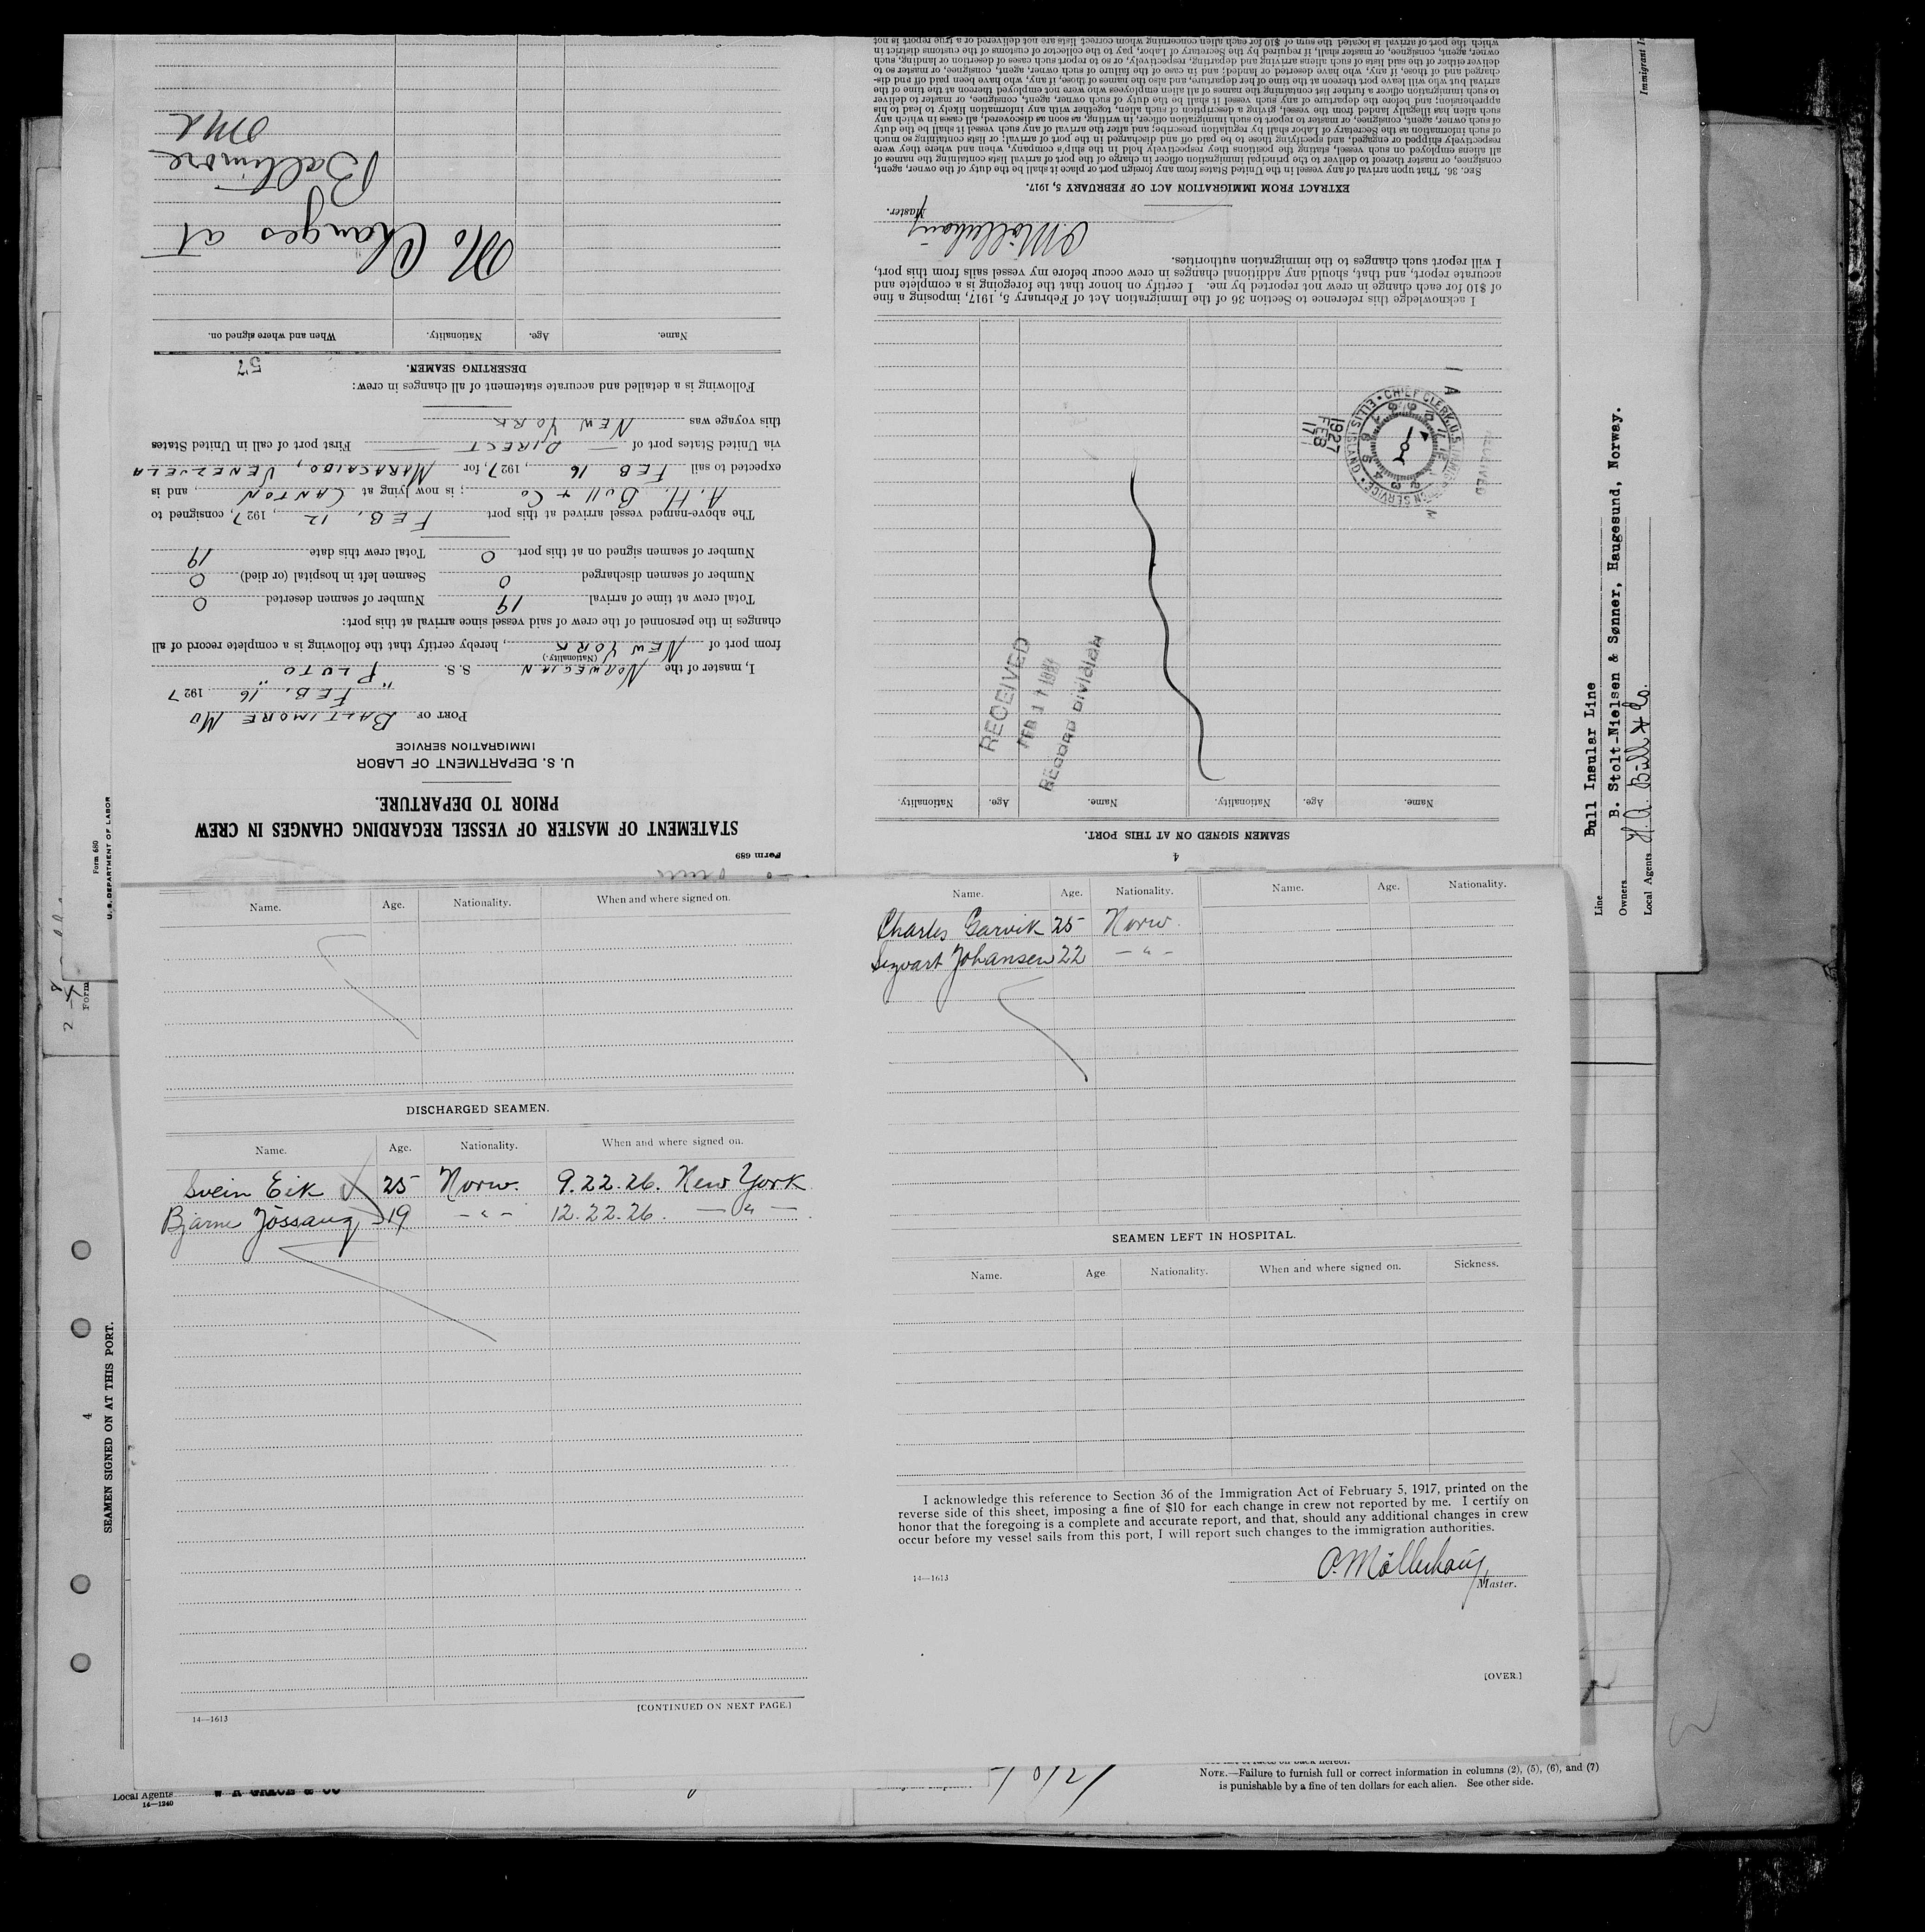 Form 689
STATEMENT OF MASTER OF VESSEL REGARDING CHANGES IN CREW
PRIOR TO DEPARTURE.
U. S. DEPARTMENT OF LABOR
IMMIGRATION SERVICE
PORT OF BALTIMORE MD
FEB. 16 1927
I, master of the NORWEGIAN S. S. "PLUTO"
(Nationality.)
from port of NEW YORK, hereby certify that the following is a complete record of all
changes in the personnel of the crew of said vessel since arrival at this port:
Total crew at time of arrival 19 Number of seamen deserted 0
Number of seamen discharged 0 Seamen left in hospital (or died) 0
Number of seamen signed on at this port 0 Total crew this date 19
The above-named vessel arrived at this port FEB. 12, 1927, consigned to
A. H. BULL & CO; is now lying at CANTON, and is
expected to sail FEB 16, 1927, for MARACAIBO, VENEZUELA
via United States port of DIRECT First port of call in United States
this voyage was NEW YORK
Following is a detailed and accurate statement of all changes in crew:
DESERTING SEAMEN. 57
Name. Age. Nationality. When and where signed on.
No Changes at
Baltimore
Md
4
SEAMEN SIGNED ON AT THIS PORT.
Name. Age. Nationality. Name. Age. Nationality.
RECEIVED
FEB 17 1927
RECORD DIVISION
RECEIVED
CHIEF CLERK U.S. IMMIGRATION SERVICE ELLIS ISLAND
1927
FEB
17
I acknowledge this reference to Section 36 of the Immigration Act of February 5, 1917, imposing a fine
of $10 for each change in crew not reported by me. I certify on honor that the foregoing is a complete and
accurate report, and that, should any additional changes in crew occur before my vessel sails from this port,
I will report such changes to the immigration authorities.
O Möllerhaug
Master.
EXTRACT FROM IMMIGRATION ACT OF FEBRUARY 5, 1917.
SEC. 36. That upon arrival of any vessel in the United States from any foreign port or place it shall be the duty of the owner, agent,
consignee, or master thereof to deliver to the principal immigration officer in charge of the port of arrival lists containing the names of
all aliens employed on such vessel, stating the positions they respectively hold in the ship's company, when and where they were
respectively shipped or engaged, and specifying those to be paid off and discharged in the port of arrival; or lists containing so much
of such information as the Secretary of Labor shall by regulation prescribe; and after the arrival of any such vessel it shall be the duty
of such owner, agent, consignee, or master to report to such immigration officer, in writing, as soon as discovered, all cases in which any
such alien has illegally landed from the vessel, giving a description of such alien, together with any information likely to lead to his
apprehension; and before the departure of any such vessel it shall be the duty of such owner, agent, consignee, or master to deliver
to such immigration officer a further list containing the names of all alien employees who were not employed thereon at the time of the
arrival but who will leave port thereon at the time of her departure, and also the names of those, if any, who have been paid off and dis-
charged and of those, if any, who have deserted or landed; and in case of the failure of such owner, agent, consignee, or master so to
deliver either of the said lists of such aliens arriving and departing, respectively, or so to report such cases of desertion or landing, such
owner, agent, consignee, or master shall, if required by the Secretary of Labor, pay to the collector of customs of the customs district in
which the port of arrival is located the sum of $10 for each alien concerning whom correct lists are not delivered or a true report is not
Line Bull Insular Line
Owners B. Stolt-Nielsen & Sønner, Haugesund, Norway.
Local Agents H. A. Bull & Co.
Form 680
U. S. DEPARTMENT OF LABOR
Name. Age. Nationality. When and where signed on.
DISCHARGED SEAMEN.
Name. Age. Nationality. When and where signed on.
Svein Eik 25 Norw. 9.22.26. New York
Bjarne Jössang 19 — " — 12.22.26. — " —
[CONTINUED ON NEXT PAGE.]
14—1613
Name. Age. Nationality. Name. Age. Nationality.
Charles Garvik 25 Norw.
Sigvart Johansen 22 — " —
SEAMEN LEFT IN HOSPITAL.
Name. Age Nationality. When and where signed on. Sickness.
I acknowledge this reference to Section 36 of the Immigration Act of February 5, 1917, printed on the
reverse side of this sheet, imposing a fine of $10 for each change in crew not reported by me. I certify on
honor that the foregoing is a complete and accurate report, and that, should any additional changes in crew
occur before my vessel sails from this port, I will report such changes to the immigration authorities.
O. Möllerhaug,
14—1613 Master.
[OVER.]
4
SEAMEN SIGNED ON AT THIS PORT.
Local Agents W R GRACE & CO
14—1240
NOTE.—Failure to furnish full or correct information in columns (2), (5), (6), and (7)
is punishable by a fine of ten dollars for each alien. See other side.